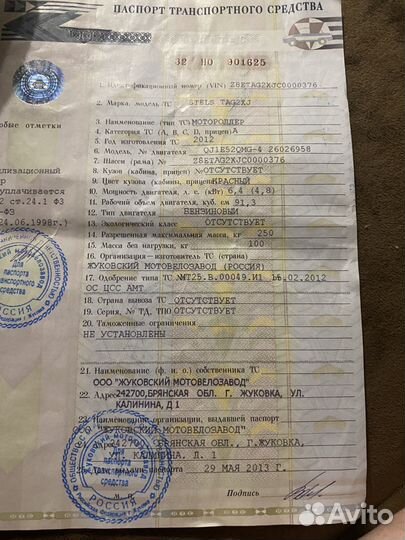 ПАСПОРТ ТРАНСПОРТНОГО СРЕДСТВА
32 НО 901625
1. Идентификационный номер (VIN) Z8ETAG2XJC0000376
2. Марка, модель ТС STELS TAG2XJ
3. Наименование (тип ТС) МОТОРОЛЛЕР
4. Категория ТС (A, B, C, D, прицеп) A
5. Год изготовления ТС 2012
6. Модель, № двигателя QJ1E52QMG-4 Z6026958
7. Шасси (рама) № Z8ETAG2XJC0000376
8. Кузов (кабина, прицеп) № ОТСУТСТВУЕТ
9. Цвет кузова (кабины, прицепа) КРАСНЫЙ
10. Мощность двигателя, л. с. (кВт) 6,4 (4,8)
11. Рабочий объем двигателя, куб. см 91,3
12. Тип двигателя БЕНЗИНОВЫЙ
13. Экологический класс ОТСУТСТВУЕТ
14. Разрешенная максимальная масса, кг 250
15. Масса без нагрузки, кг 100
16. Организация-изготовитель ТС (страна)
ЖУКОВСКИЙ МОТОВЕЛОЗАВОД (РОССИЯ)
17. Одобрение типа ТС № МТ25.В.00049.И1 16.02.2012
ОС ЦСС АМТ
18. Страна вывоза ТС ОТСУТСТВУЕТ
19. Серия, № ТД, ТПО ОТСУТСТВУЕТ
20. Таможенные ограничения
НЕ УСТАНОВЛЕНЫ
21. Наименование (ф. и. о.) собственника ТС
ООО "ЖУКОВСКИЙ МОТОВЕЛОЗАВОД"
22. Адрес 242700, БРЯНСКАЯ ОБЛ. Г. ЖУКОВКА, УЛ.
КАЛИНИНА, Д 1
23. Наименование организации, выдавшей паспорт
ООО "ЖУКОВСКИЙ МОТОВЕЛОЗАВОД"
БРЯНСКАЯ ОБЛ., Г.ЖУКОВКА,
УЛ. КАЛИНИНА, Д. 1
25. Дата выдачи паспорта 29 МАЯ 2013 Г.
Подпись
М. П.
обые отметки
лизационный
р
уплачивается
2 ст.24.1 ФЗ
-ФЗ
24.06.1998г.)
Для
паспорта
транспортного
средства
РОССИЯ
Для
паспорта
транспортного
средства
РОССИЯ
Avito